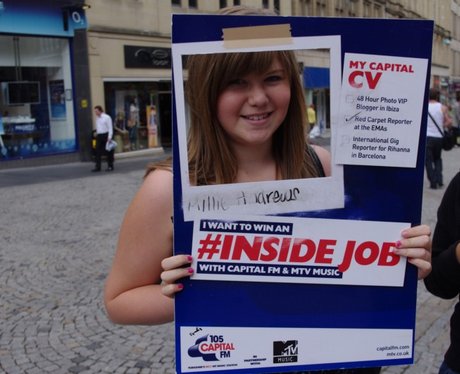 MY CAPITAL
CV
48 Hour Photo VIP
Blogger in Ibiza
Red Carpet Reporter
at the EMAs
International Gig
Reporter for Rihanna
in Barcelona
Millie Andrews
I WANT TO WIN AN
#INSIDE JOB
WITH CAPITAL FM & MTV MUSIC
105
CAPITAL
FM
IN
PARTNERSHIP
WITH
MTV
MUSIC
capitalfm.com
mtv.co.uk